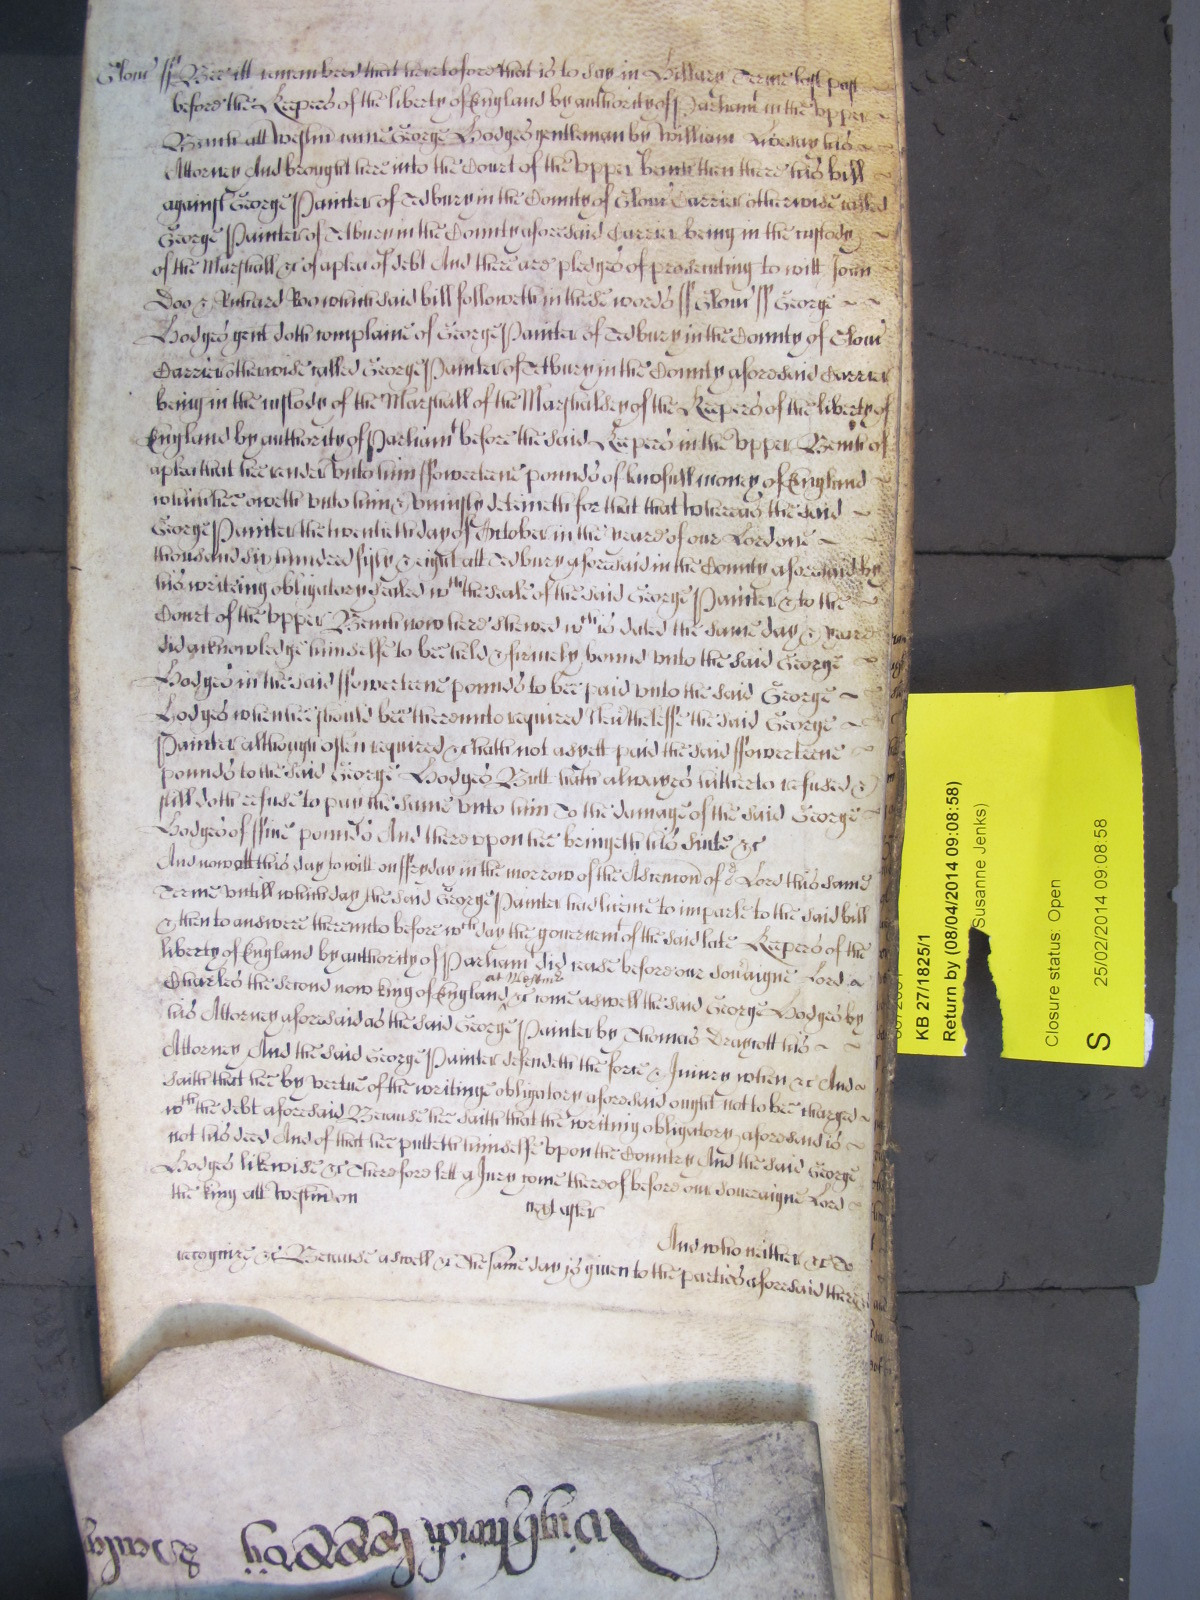 Glouc ss Bee itt remembred that heretofore that is to say in Hillary Terme last past
before the Keepers of the liberty of England by authority of Parliamt in the Upper
Bench att Westm came George Hodges gentleman by William his
Attorney And brought here into the Court of the Upper bench then there his bill
against George Painter of Tedbury in the County of Glouc Carrier otherwise called
George Painter of Tetbury in the County aforesaid Carrier being in the custody
of the Marshall &c of a plea of debt And there are pledges of prosecuting to witt John
Doo & Richard Roo which said bill followeth in these words ss Glouc ss George
Hodges gent doth complaine of George Painter of Tedbury in the County of Glouc
Carrier otherwise called George Painter of Tetbury in the County aforesaid Carrier
being in the custody of the Marshall of the Marshalsey of the Keepers of the liberty of
England by authority of Parliamt before the said Keepers in the Upper Bench of
a plea that hee render unto him ffowerteene pounds of lawfull money of England
which hee oweth unto him & uniustly deteineth for that that whereas the said
George Painter the twentieth day of October in the yeare of our Lord one
thousand six hundred fifty & eight att Tedbury aforesaid in the County aforesaid by
his writeing obligatory sealed wth the seale of the said George Painter & to the
Court of the Upper Bench now here shewed wch is dated the same day & yeare
did acknowledge himselfe to bee held & firmely bound unto the said George
Hodges in the said ffowerteene pounds to bee paid unto the said George
Hodges when hee should bee thereunto required Neuthelesse the said George
Painter although often required &c hath not as yett paid the said ffowerteene
pounds to the said George Hodges Butt hath alwayes hitherto refused &
still doth refuse to pay the same unto him To the damage of the said George
Hodges of ffive pounds And thereupon hee bringeth his suite &c
And now att this day to witt on ffryday in the morrow of the Ascencon of or Lord this same
Terme untill which day the said George Painter had licence to imparle to the said bill
& then to answere thereunto before wch day the governemt of the said late Keepers of the
liberty of England by authority of Parliamt did cease before our Soveraigne Lord
Charles the second now King of England &c at Westmr come aswell the said George Hodges by
his Attorney aforesaid as the said George Painter by Thomas Draycott his
Attorney And the said George Painter defendeth the force & Iniury when &c And
saith that hee by vertue of the writinge obligatory aforesaid ought not to bee charged
wth the debt aforesaid Because hee saith that the writing obligatory aforesaid is
not his deed And of that hee putteth himselfe upon the Country And the said George
Hodges likewise &c Therefore lett a Jury come thereof before our Soveraigne Lord
the King att Westm on next after
And who neither &c To
recognize &c Because aswell &c The same day is given to the parties aforesaid there &c
KB 27/1825/1
Return by (08/04/2014 09:08:58)
Susanne Jenks)
Closure status: Open
S
25/02/2014 09:08:58